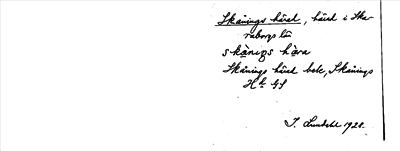 Skånings härad, härad i Ska-
raborgs län
skånigs håra
Skånings härad bebe, Skånings
Hd GS
I. Lundahl 1928.